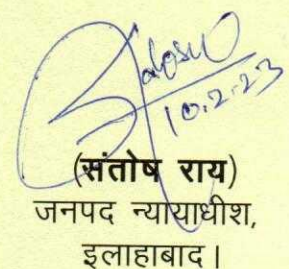 10.2.23
(संतोष राय)
जनपद न्यायाधीश,
इलाहाबाद।